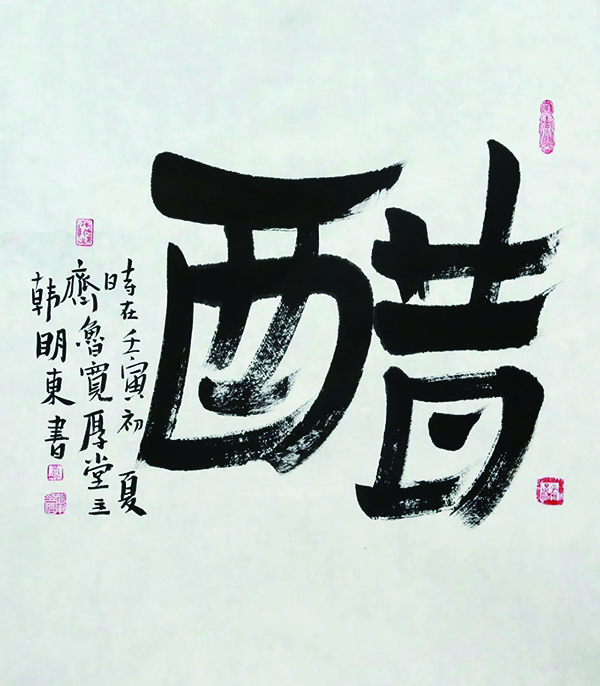 醋
時在壬寅初夏
齊魯寬厚堂主
韓明東書